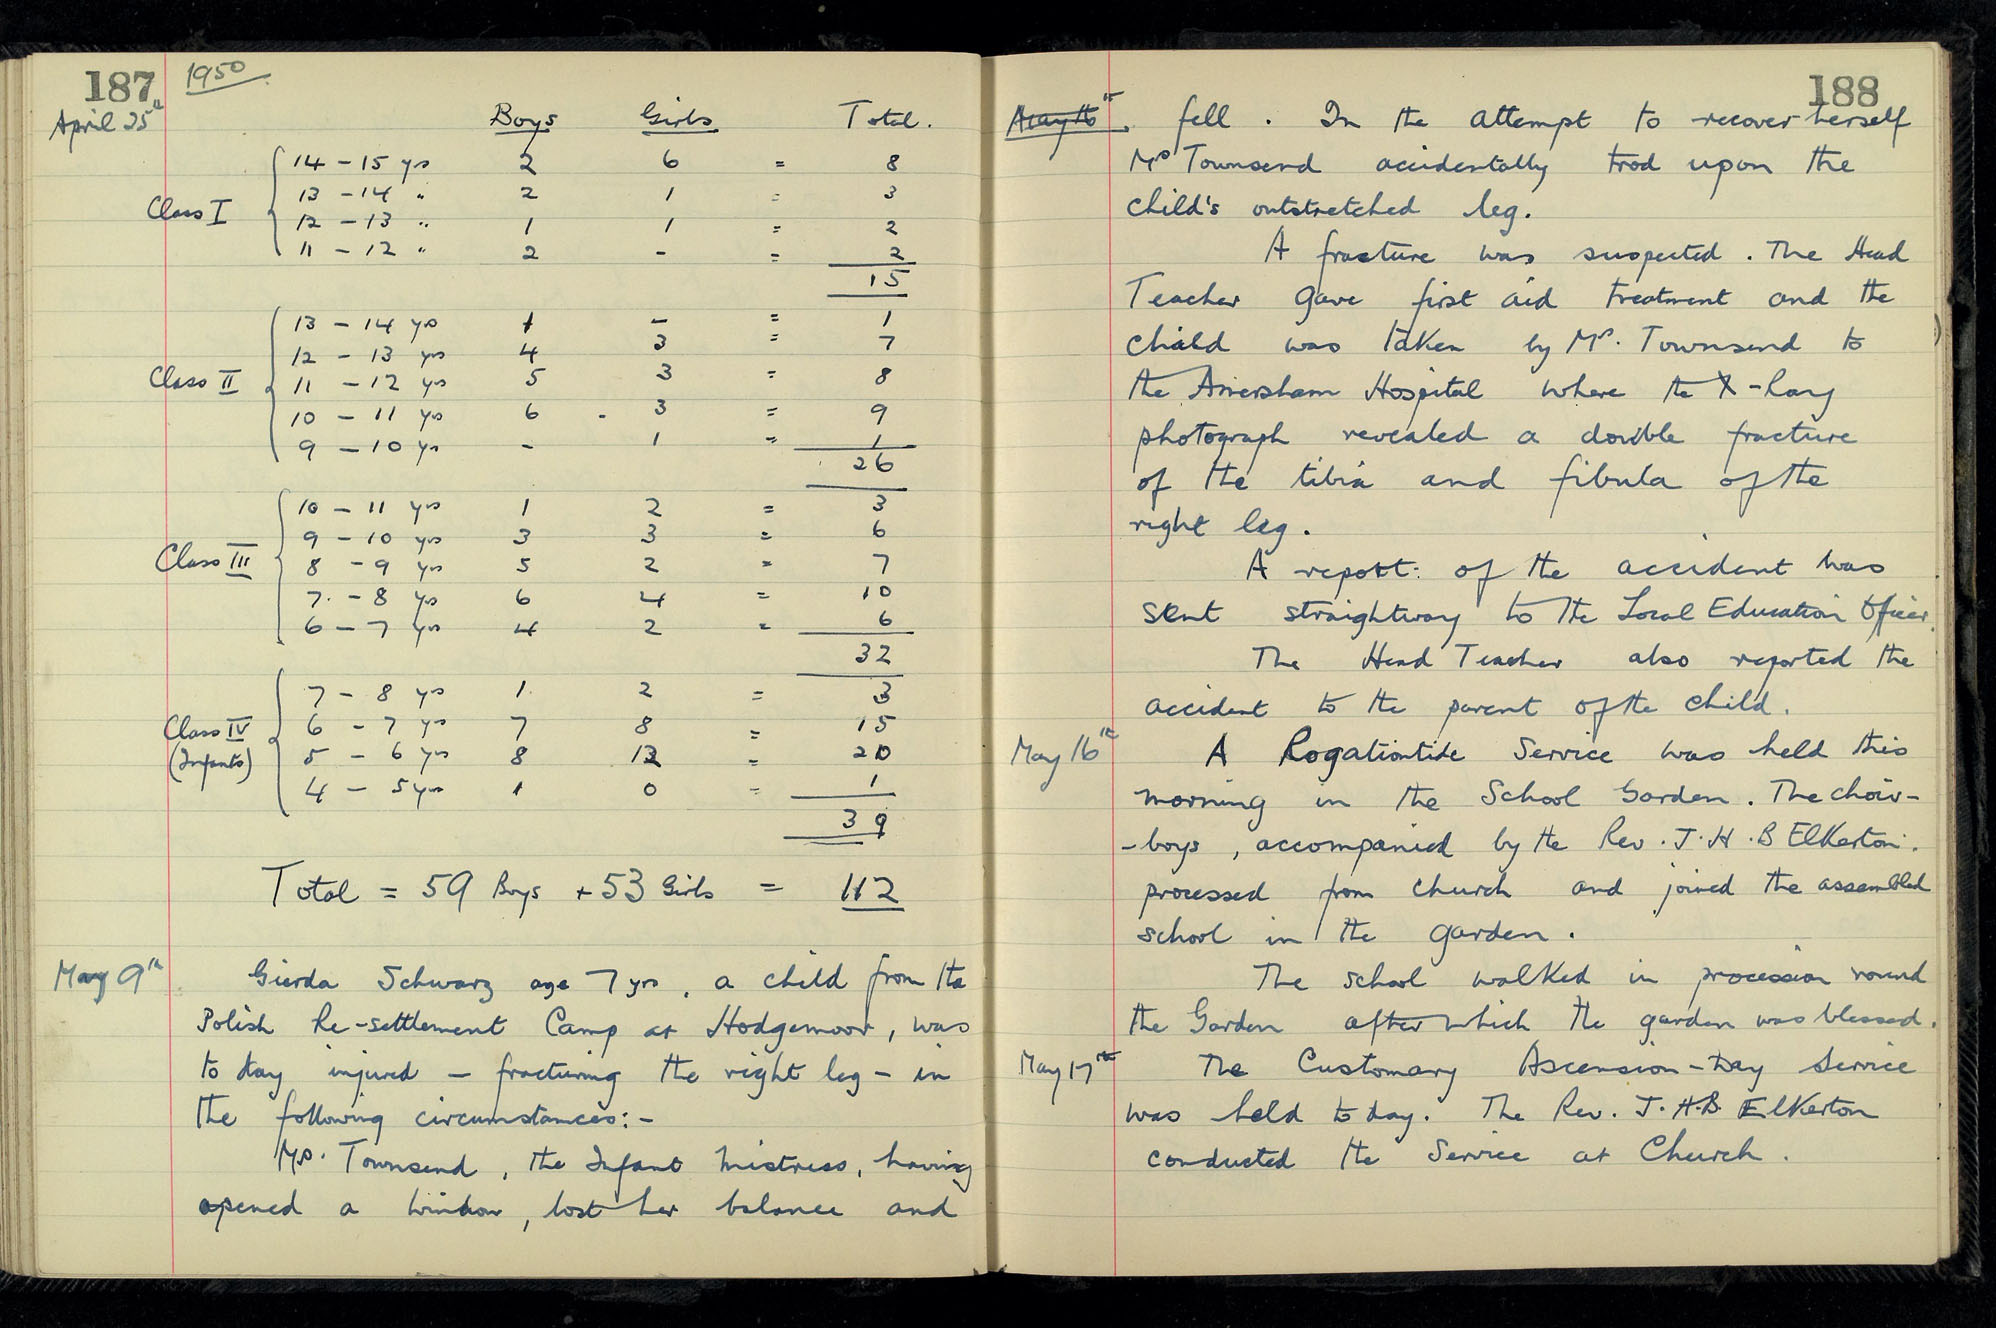 187
1950
April 25th
Boys Girls Total.
14 - 15 yrs 2 6 = 8
13 - 14 " 2 1 = 3
Class I
12 - 13 " 1 1 = 2
11 - 12 " 2 - = 2
15
13 - 14 yrs 1 - = 1
12 - 13 yrs 4 3 = 7
Class II
11 - 12 yrs 5 3 = 8
10 - 11 yrs 6 3 = 9
9 - 10 yrs - 1 = 1
26
10 - 11 yrs 1 2 = 3
9 - 10 yrs 3 3 = 6
Class III
8 - 9 yrs 5 2 = 7
7 - 8 yrs 6 4 = 10
6 - 7 yrs 4 2 = 6
32
7 - 8 yrs 1 2 = 3
Class IV
6 - 7 yrs 7 8 = 15
(Infants)
5 - 6 yrs 8 12 = 20
4 - 5 yrs 1 0 = 1
39
Total = 59 Boys + 53 Girls = 112
May 9th
Gierda Schwarz age 7 yrs, a child from the
Polish Re-settlement Camp at Hodgemoor, was
to day injured - fracturing the right leg - in
the following circumstances:-
Mrs. Townsend, the Infant Mistress, having
opened a window, lost her balance and
188
May 16th
fell. In the attempt to recover herself
Mrs Townsend accidentally trod upon the
child's outstretched leg.
A fracture was suspected. The Head
Teacher gave first aid treatment and the
chiald was taken by Mrs. Townsend to
the Amersham Hospital where the X-Ray
photograph revealed a double fracture
of the tibia and fibula of the
right leg.
A report of the accident was
sent straightway to the Local Education Officer.
The Head Teacher also reported the
accident to the parent of the child.
May 16th
A Rogationtide Service was held this
morning in the School Garden. The choir-
-boys, accompanied by the Rev. J.H.B Elkerton.
processed from church and joined the assembled
school in the garden.
The school walked in procession round
the Garden after which the garden was blessed.
May 17th
The Customary Ascension-Day Service
was held to day. The Rev. J.H.B. Elkerton
conducted the Service at Church.